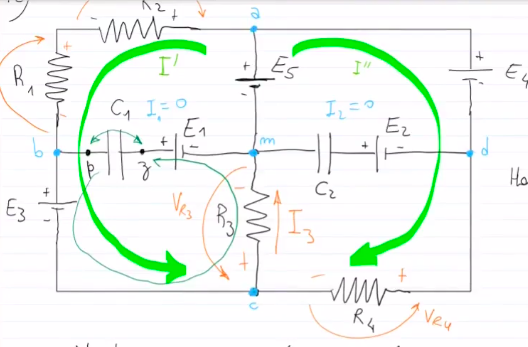 R2
- +
a
+
R1
I'
+
-
E5
I''
+
-
E4
C1
I1 = 0
E1
I2 = 0
E2
b
p
z
+ -
m
+ -
d
C2
Ha
E3
+
-
VR3
R3
-
+
I3
c
- +
R4
VR4